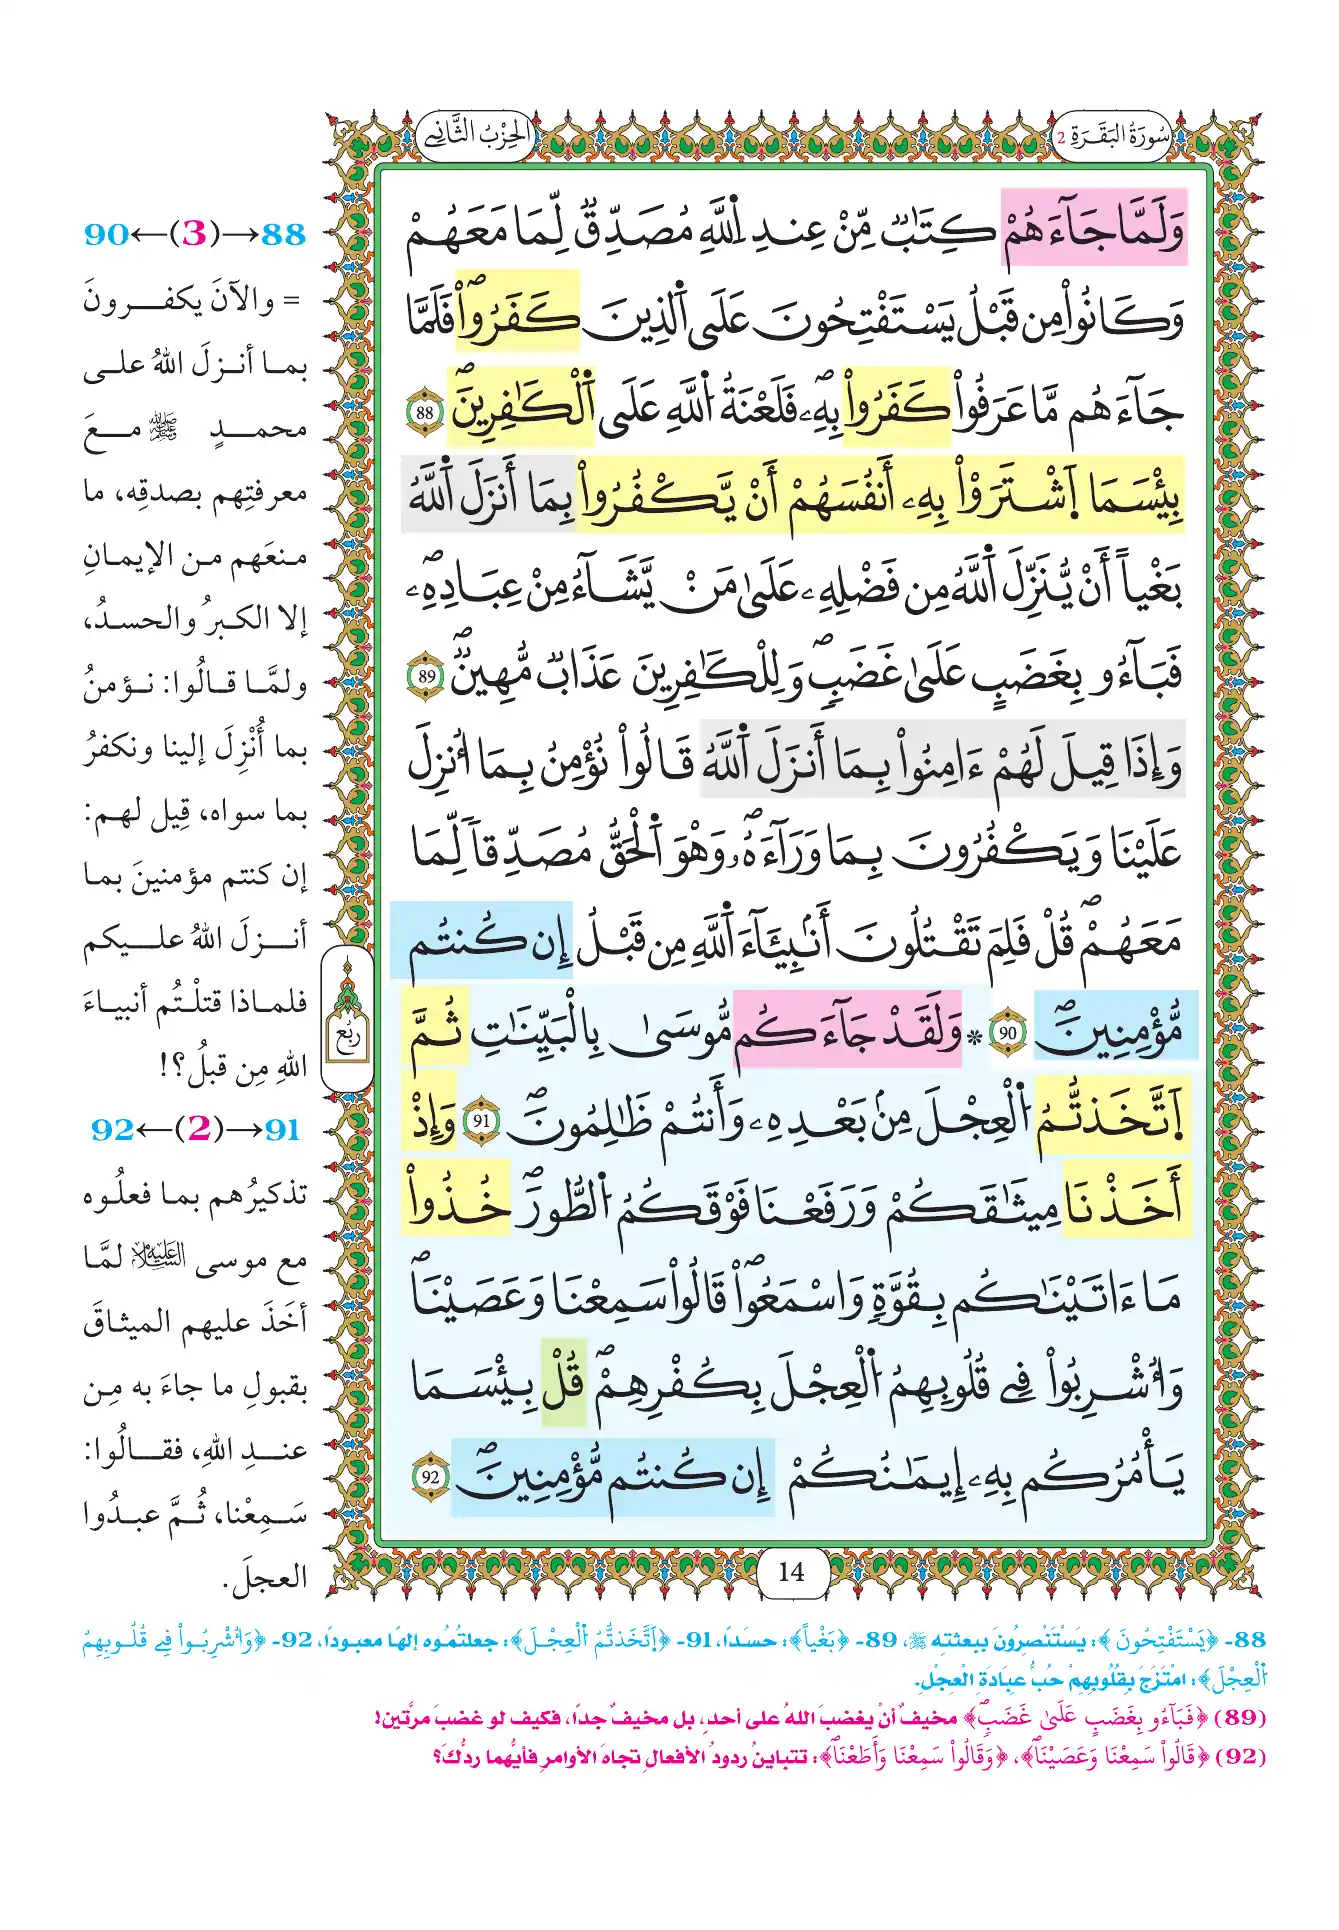 سُورَةُ البَقَرَةِ 2
الحِزْبُ الثَّانِي
وَلَمَّا جَآءَهُمْ كِتَٰبٌ مِّنْ عِندِ اِ۬للَّهِ مُصَدِّقٌ لِّمَا مَعَهُمْ
وَكَانُواْ مِن قَبْلُ يَسْتَفْتِحُونَ عَلَى اَ۬لذِينَ كَفَرُواْۖ فَلَمَّا
جَآءَهُم مَّا عَرَفُواْ كَفَرُواْ بِهِۦۖ فَلَعْنَةُ اُ۬للَّهِ عَلَى اَ۬لْكَٰفِرِينَۖ 88
بِيسَمَا اَ۪شْتَرَوْاْ بِهِۦٓ أَنفُسَهُمْ أَنْ يَّكْفُرُواْ بِمَا أَنزَلَ اَ۬للَّهُ
بَغْياً أَنْ يُّنَزِّلَ اَ۬للَّهُ مِن فَضْلِهِۦ عَلَىٰ مَنْ يَّشَآءُ مِنْ عِبَادِهِۦۖ
فَبَآءُو بِغَضَبٍ عَلَىٰ غَضَبٖۖ وَلِلْكَٰفِرِينَ عَذَابٌ مُّهِينٌۖ 89
وَإِذَا قِيلَ لَهُمْ ءَامِنُواْ بِمَا أَنزَلَ اَ۬للَّهُ قَالُواْ نُؤْمِنُ بِمَا أُنزِلَ
عَلَيْنَا وَيَكْفُرُونَ بِمَا وَرَآءَهُۥۖ وَهْوَ اَ۬لْحَقُّ مُصَدِّقاً لِّمَا
مَعَهُمْۖ قُلْ فَلِمَ تَقْتُلُونَ أَنۢبِئَآءَ اَ۬للَّهِ مِن قَبْلُ إِن كُنتُم
مُّؤْمِنِينَۖ 90 * وَلَقَدْ جَآءَكُم مُّوسَىٰ بِالْبَيِّنَٰتِ ثُمَّ
اَ۪تَّخَذتُّمُ اُ۬لْعِجْلَ مِنۢ بَعْدِهِۦ وَأَنتُمْ ظَٰلِمُونَۖ 91 وَإِذْ
أَخَذْنَا مِيثَٰقَكُمْ وَرَفَعْنَا فَوْقَكُمُ اُ۬لطُّورَۖ خُذُواْ
مَا ءَاتَيْنَٰكُم بِقُوَّةٍ وَاسْمَعُواْۖ قَالُواْ سَمِعْنَا وَعَصَيْنَاۖ
وَأُشْرِبُواْ فِي قُلُوبِهِمُ اُ۬لْعِجْلَ بِكُفْرِهِمْۖ قُلْ بِيسَمَا
يَأْمُرُكُم بِهِۦٓ إِيمَٰنُكُمْ إِن كُنتُم مُّؤْمِنِينَۖ 92
ربع
14
88→(3)←90
= والآنَ يكفرونَ
بما أنزلَ اللهُ على
محمدٍ ﷺ معَ
معرفتِهم بصدقِه، ما
منعَهم من الإيمانِ
إلا الكبرُ والحسدُ،
ولمَّا قالُوا: نؤمنُ
بما أُنْزِلَ إلينا ونكفرُ
بما سواه، قِيل لهم:
إن كنتم مؤمنينَ بما
أنزلَ اللهُ عليكم
فلماذا قتلْتُم أنبياءَ
اللهِ مِن قبلُ؟!
91→(2)←92
تذكيرُهم بما فعلُوه
مع موسى عليه السلام لمَّا
أخَذَ عليهم الميثاقَ
بقبولِ ما جاءَ به مِن
عندِ اللهِ، فقالُوا:
سَمِعْنا، ثُمَّ عبدُوا
العجلَ.
88- ﴿يَسْتَفْتِحُونَ﴾: يَسْتَنْصِرُونَ ببعثتِه ﷺ، 89- ﴿بَغْياً﴾: حسَدًا، 91- ﴿اَ۪تَّخَذتُّمُ اُ۬لْعِجْلَ﴾: جعلتُمُوه إلهًا معبودًا، 92- ﴿وَأُشْرِبُواْ فِي قُلُوبِهِمُ
اُ۬لْعِجْلَ﴾: امْتَزَجَ بِقُلُوبِهِمْ حُبُّ عِبَادَةِ الْعِجْلِ.
(89) ﴿فَبَآءُو بِغَضَبٍ عَلَىٰ غَضَبٖ﴾ مخيفٌ أنْ يغضبَ اللهُ على أحدٍ، بل مخيفٌ جدًا، فكيف لو غضبَ مرَّتين!
(92) ﴿قَالُواْ سَمِعْنَا وَعَصَيْنَاۖ﴾، ﴿وَقَالُواْ سَمِعْنَا وَأَطَعْنَاۖ﴾: تتباينُ ردودُ الأفعالِ تجاهَ الأوامرِ فأيُّهما ردُّكَ؟